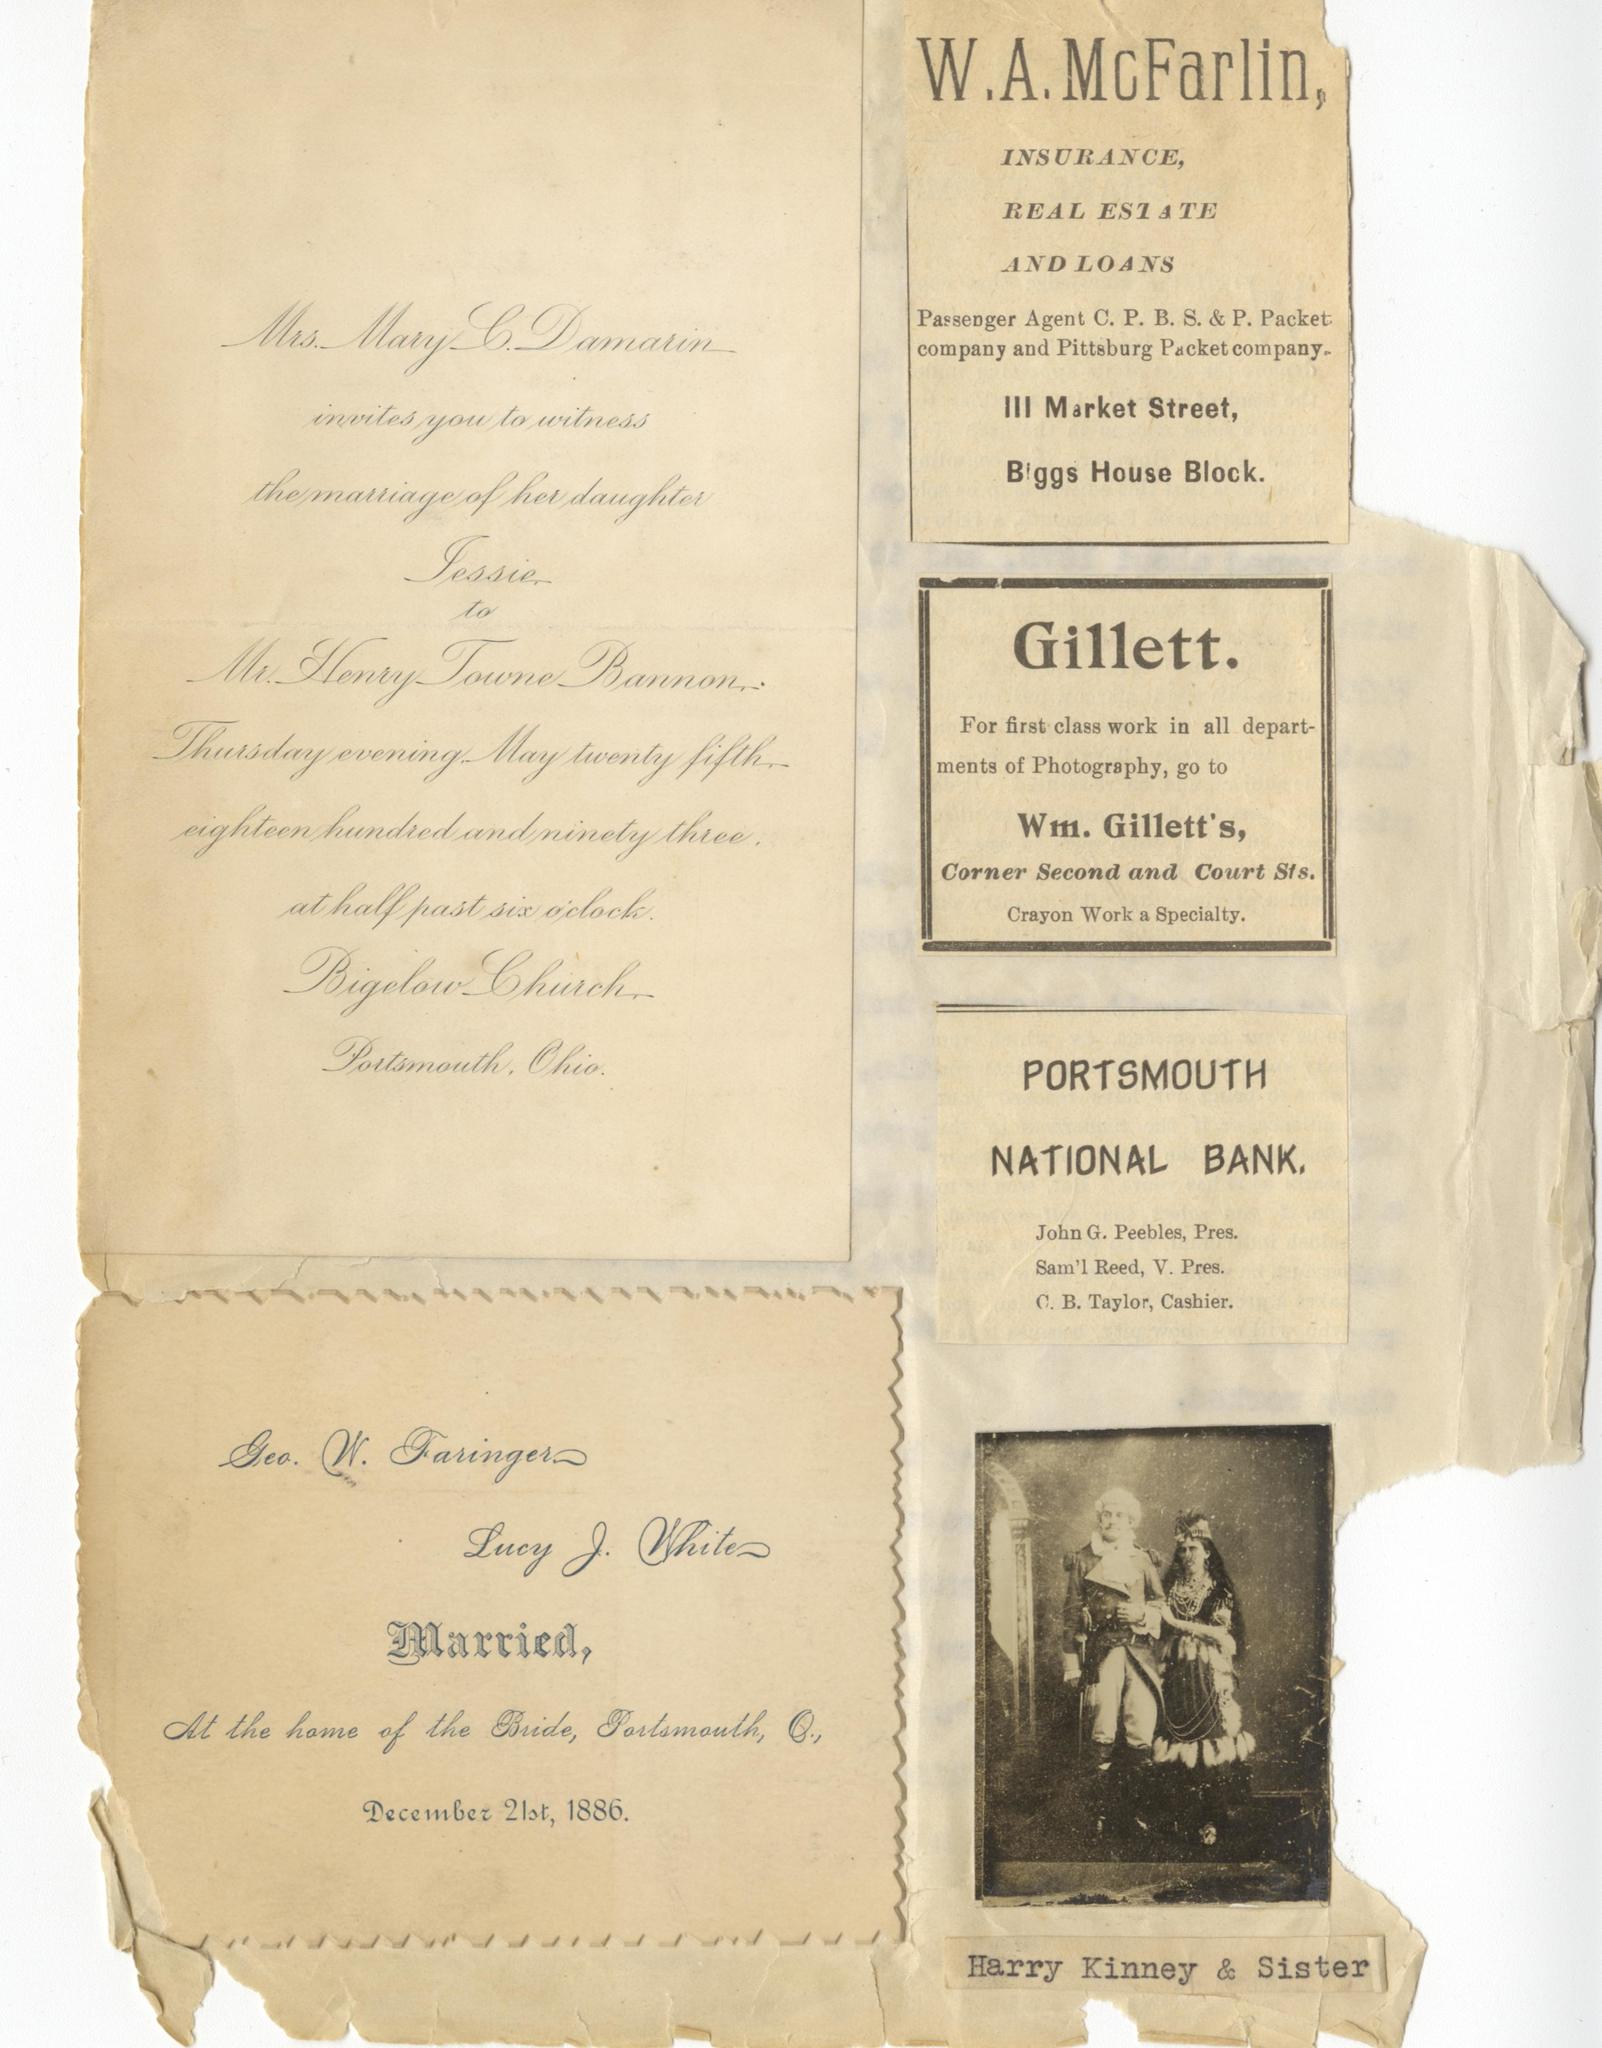 Mrs. Mary C. Damarin
invites you to witness
the marriage of her daughter
Jessie
to
Mr. Henry Towne Bannon.
Thursday evening May twenty fifth
eighteen hundred and ninety three.
at half past six o'clock.
Bigelow Church
Portsmouth, Ohio.
Geo. W. Faringer
Lucy J. White
Married,
At the home of the Bride, Portsmouth, O.,
December 21st, 1886.
W. A. McFarlin,
INSURANCE,
REAL ESTATE
AND LOANS
Passenger Agent C. P. B. S. & P. Packet
company and Pittsburg Packet company.
111 Market Street,
Biggs House Block.
Gillett.
For first class work in all depart-
ments of Photography, go to
Wm. Gillett's,
Corner Second and Court Sts.
Crayon Work a Specialty.
PORTSMOUTH
NATIONAL BANK.
John G. Peebles, Pres.
Sam'l Reed, V. Pres.
C. B. Taylor, Cashier.
Harry Kinney & Sister